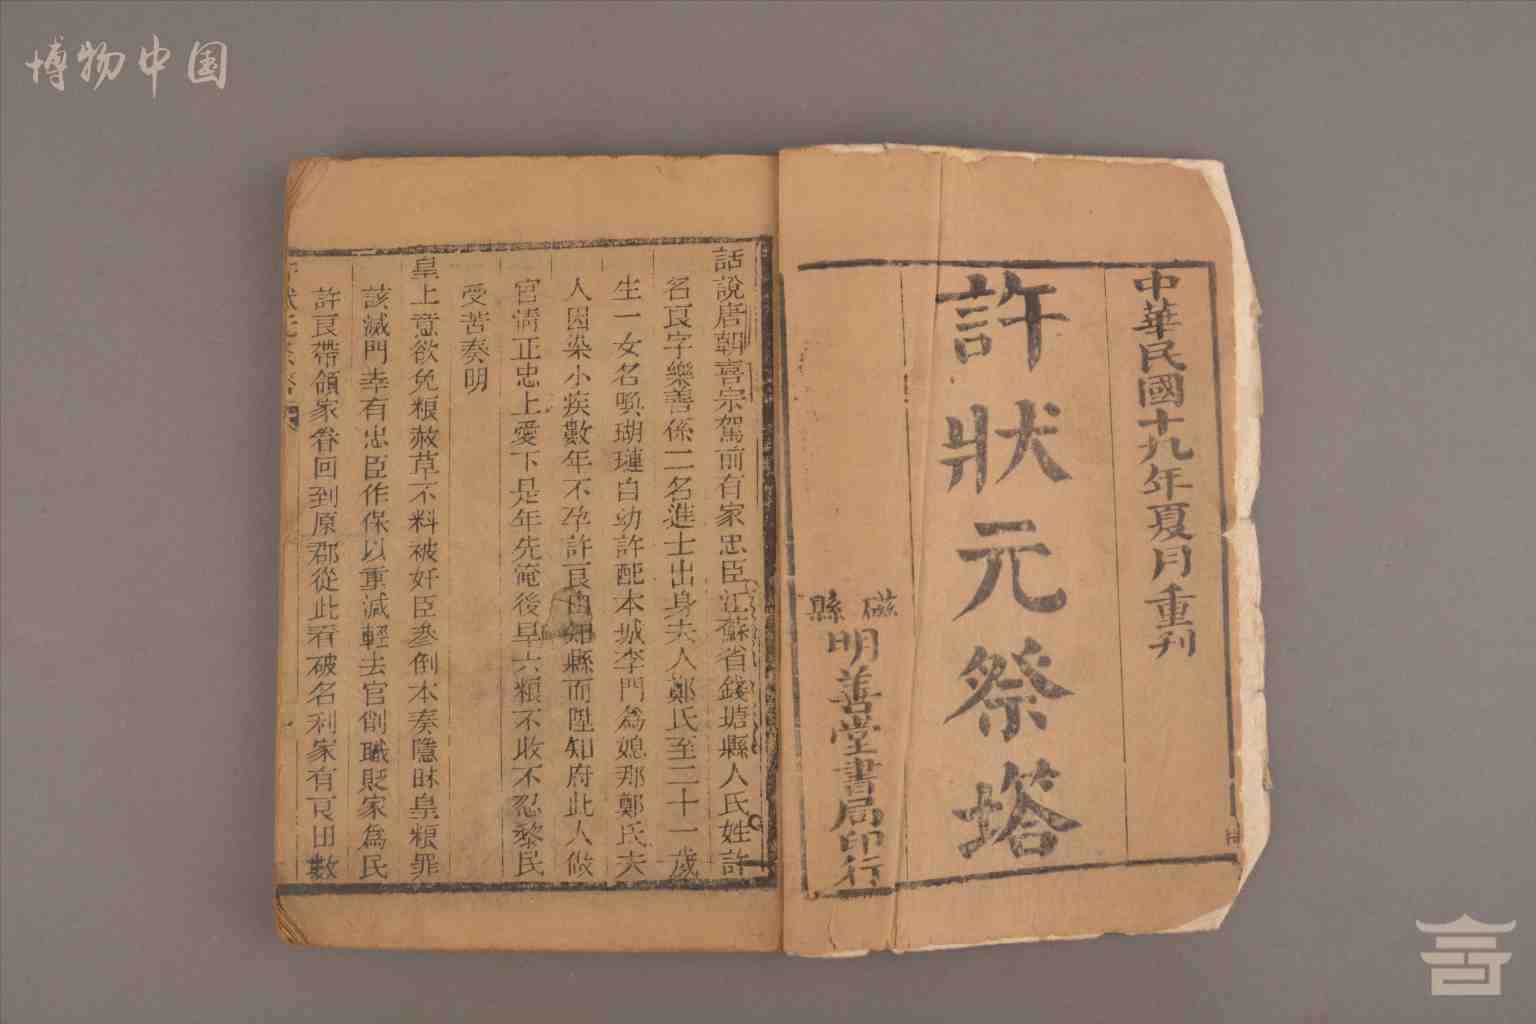 博物中国
中華民國十九年夏月重刊
許狀元祭塔
磁縣
明善堂書局印行
話說唐朝喜宗駕前有家忠臣江蘇省錢塘縣人氏姓許
名良字樂善係二名進士出身夫人鄭氏至二十一歲
生一女名喚瑚璉自幼許配本城李門為媳那鄭氏夫
人因染小疾數年不孕許良由知縣而陞知府此人做
官清正忠上愛下是年先淹後旱六粮不收不忍黎民
受苦奏明
皇上意欲免粮赦草不料被奸臣叅倒本奏隱昧皇粮罪
該滅門幸有忠臣作保以重減輕去官削職貶家為民
許良帶領家眷回到原郡從此看破名利家有良田數